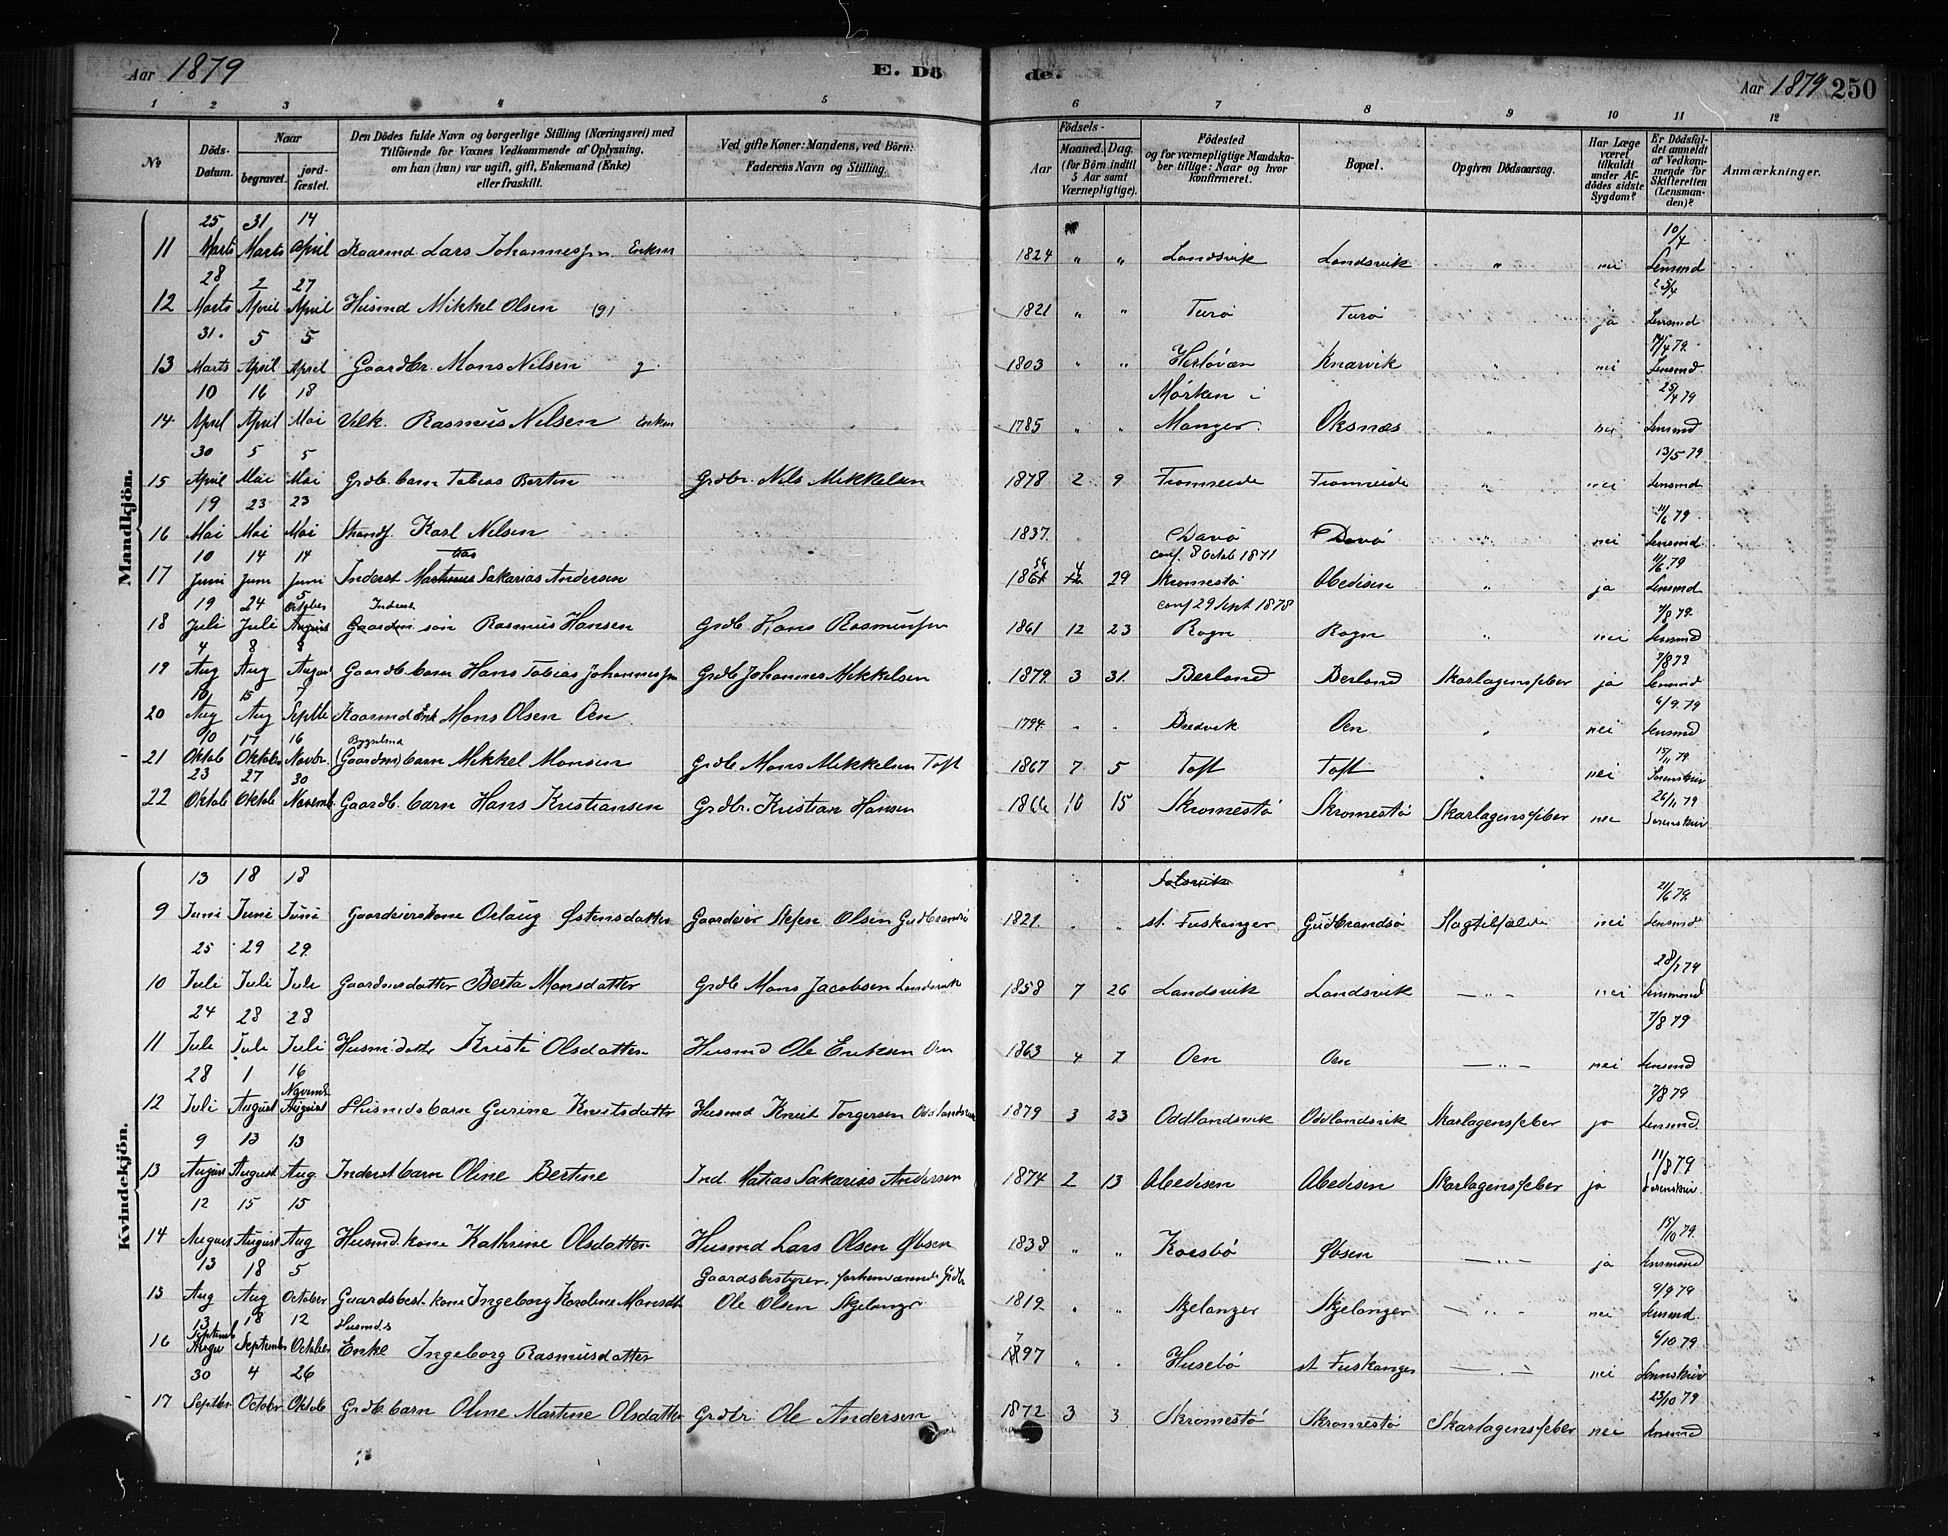 Aar 1879 E. Dö de. Aar 1879 250
1 2 3 4 5 6 7 8 9 10 11 12
No Döds-Datum. Naar begravet. jordfæstet. Den Dödes fulde Navn og borgerlige Stilling (Næringsvei) med Tilföiende for Voxnes Vedkommende af Oplysning, om han (hun) var ugift, gift, Enkemand (Enke) eller fraskilt. Ved gifte Koner: Mandens, ved Börn: Faderens Navn og Stilling. Födsels- Aar Maaned. Dag. (for Börn indtil 5 Aar samt Værnepligtige). Födested og for værnepligtige Mandskaber tillige: Naar og hvor konfirmeret. Bopæl. Opgiven Dödsaarsag. Har Læge været tilkaldt under Afdödes sidste Sygdom? Er Dödsfaldet anmeldt af Vedkommende for Skifteretten (Lensmanden)? Anmærkninger.
Mandkjön.
11 25 Marts 31 Marts 14 April Kaarmd Lars Johannessen Enkm 1824 " " Landsvik Landsvik " nei 10/4 Lensmd
12 28 Marts 2 April 27 April Husmd Mikkel Olsen (g) 1821 " " Turø Turø ja 25/4 Lensmd
13 31. Marts 5 April 5 April Gaardbr. Mons Nilsen g. 1803 " " Herløvær Knarvik " nei /4 79. Lensmd.
14 10 April 16 April 18 Mai Vilk. Rasmus Nilsen Enkm 1785 " " Mørken i Manger. Oksnæs " nei 25/4 79 Lensmd
15 30 April 5 Mai 5 Mai Grdb. barn Tobias Bertin Grdbr. Nils Mikkelsen 1878 2 9 Fromreide Fromreide " nei 13/5 79. Lensmd
16 19 Mai 23 Mai 23 Mai Strandf. Karl Nilsen 1837. Davø Davø " nei 11/6 79. Lensmd
17 10 Juni 14 Juni 14 Juni Inderst Martinus Sakarias Andersen 1861 54 4 29 conf. 8 Octob 1871 Skromestø Abedisen " ja 11/6. 79 Lensmd
18 19 Juli 24 Juli 5 October August Inderst Gaardm søn Rasmus Hansen Grdb Hans Rasmussen 1861 12 23 conf 29 Sept 1878 Rogn Rogn " nei 7/8 79. Lensmd
19 4 Aug 8 Aug 8 August Gaardb. barn Hans Tobias Johannessen Grdb Johannes Mikkelsen 1879. 3 31. Berland Berland Skarlagensfeber ja 7/8 79 Lensmd
20 10 Aug 15 Aug 7 Septbe Kaarmd Enk Mons Olsen Oen 1794. " " Bredvik Oen " nei 6/9. 79 Lensmd
21 10 Oktob 17 Oktober 16 Novbr. Bygselmd (Gaardm) barn Mikkel Monsen Grdb Mons Mikkelsen Toft 1867 7 5 Toft Toft " nei 15/11 79 Sorenskriv
22 23 Oktob 27 Oktob 30 Novemb Gaardb. barn Hans Kristiansen Grdbr. Kristian Hansen 1866 10 15 Skromestø Skromestø Skarlagensfeber nei 26/11 79 Sorenskriv
Kvindekjön.
9 13 Juni 18 Juni 18 Juni Gaardeierskone Orlaug Østensdatter Gaardeier Stefen Olsen Gudbrandsø 1821. " " st. Fuskanger Gudbrandsø Slagtilfælde nei 21/6 79. Lensmd.
10 25 Juli 29 Juli 29. Juli Gaardmsdatter Berta Monsdatter Grdb Mons Jacobsen Landsvik 1858 7 26 Landsvik Landsvik — " — nei 28/7 79 Lensmand
11 24 Juli 28 Juli 28 Juli Husm. datter Kristi Olsdatter Husmd Ole Eriksen Oen 1863 4 7 Oen Oen — " — nei 7/8 79 Lensmd
12 28 Juli 1 August 16 Novemb August Husmds barn Gurine Knutsdatter Husmd Knut Torgersen Oddlandsvik 1879 3 23 Oddlandsvik Oddlandsvik Skarlagensfeber ja 7/8 79 Lensmd.
13 9 August 13 August 13 Aug. Inderst barn Oline Bertine Ind. Matias Sakarias Andersen 1874 2 13 Abedisen Abedisen Skarlagensfeber ja 11/8 79 Sorenskriv
14 12 August 15 August 15 Aug Husmd. kone Kathrine Olsdatter Husmd Lars Olsen Øbsen 1838 " " Korsbø Øbsen — " — ja 15/10 79. Lensmand
15 13 Aug 18 Aug 5 October Gaardsbest. kone Ingeborg Karoline Monsdtr Gaardsbestyrer, forhenværende Grdb Ole Olsen Skjelanger 1819. " " Skjelanger Skjelanger — " — nei 9/9 79 Lensmd.
16 13 Septemb Augu 18 September 12 October Husmds Enke Ingeborg Rasmusdatter 1797 " " Husebø st. Fuskanger — " — nei 6/10 79 Sorenskriv
17 30 Septbr 4 October 26 Oktob Grdb. barn Oline Martine Olsdatter Grdbr. Ole Andersen 1872 3 3 Skromestø Skromestø Skarlagensfeber nei 23/10 79 Lensmd